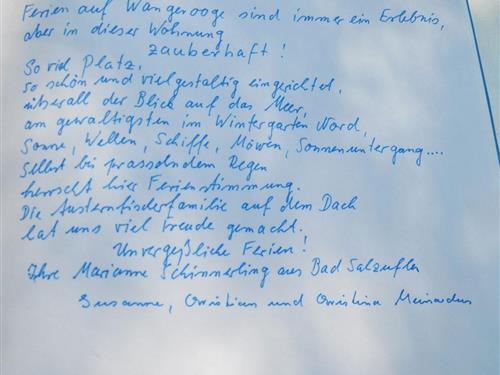 Ferien auf Wangerooge sind immer ein Erlebnis,
aber in dieser Wohnung
zauberhaft!
So viel Platz,
so schön und vielgestaltig eingerichtet,
überall der Blick auf das Meer,
am gewaltigsten im Wintergarten Nord,
Sonne, Wellen, Schiffe, Möwen, Sonnenuntergang....
Selbst bei prasselndem Regen
herrscht hier Ferienstimmung.
Die Austernfischerfamilie auf dem Dach
hat uns viel Freude gemacht.
Unvergeßliche Ferien!
Ihre Marianne Schimmerling aus Bad Salzuflen
Susanne, Christian und Christina Meinardus